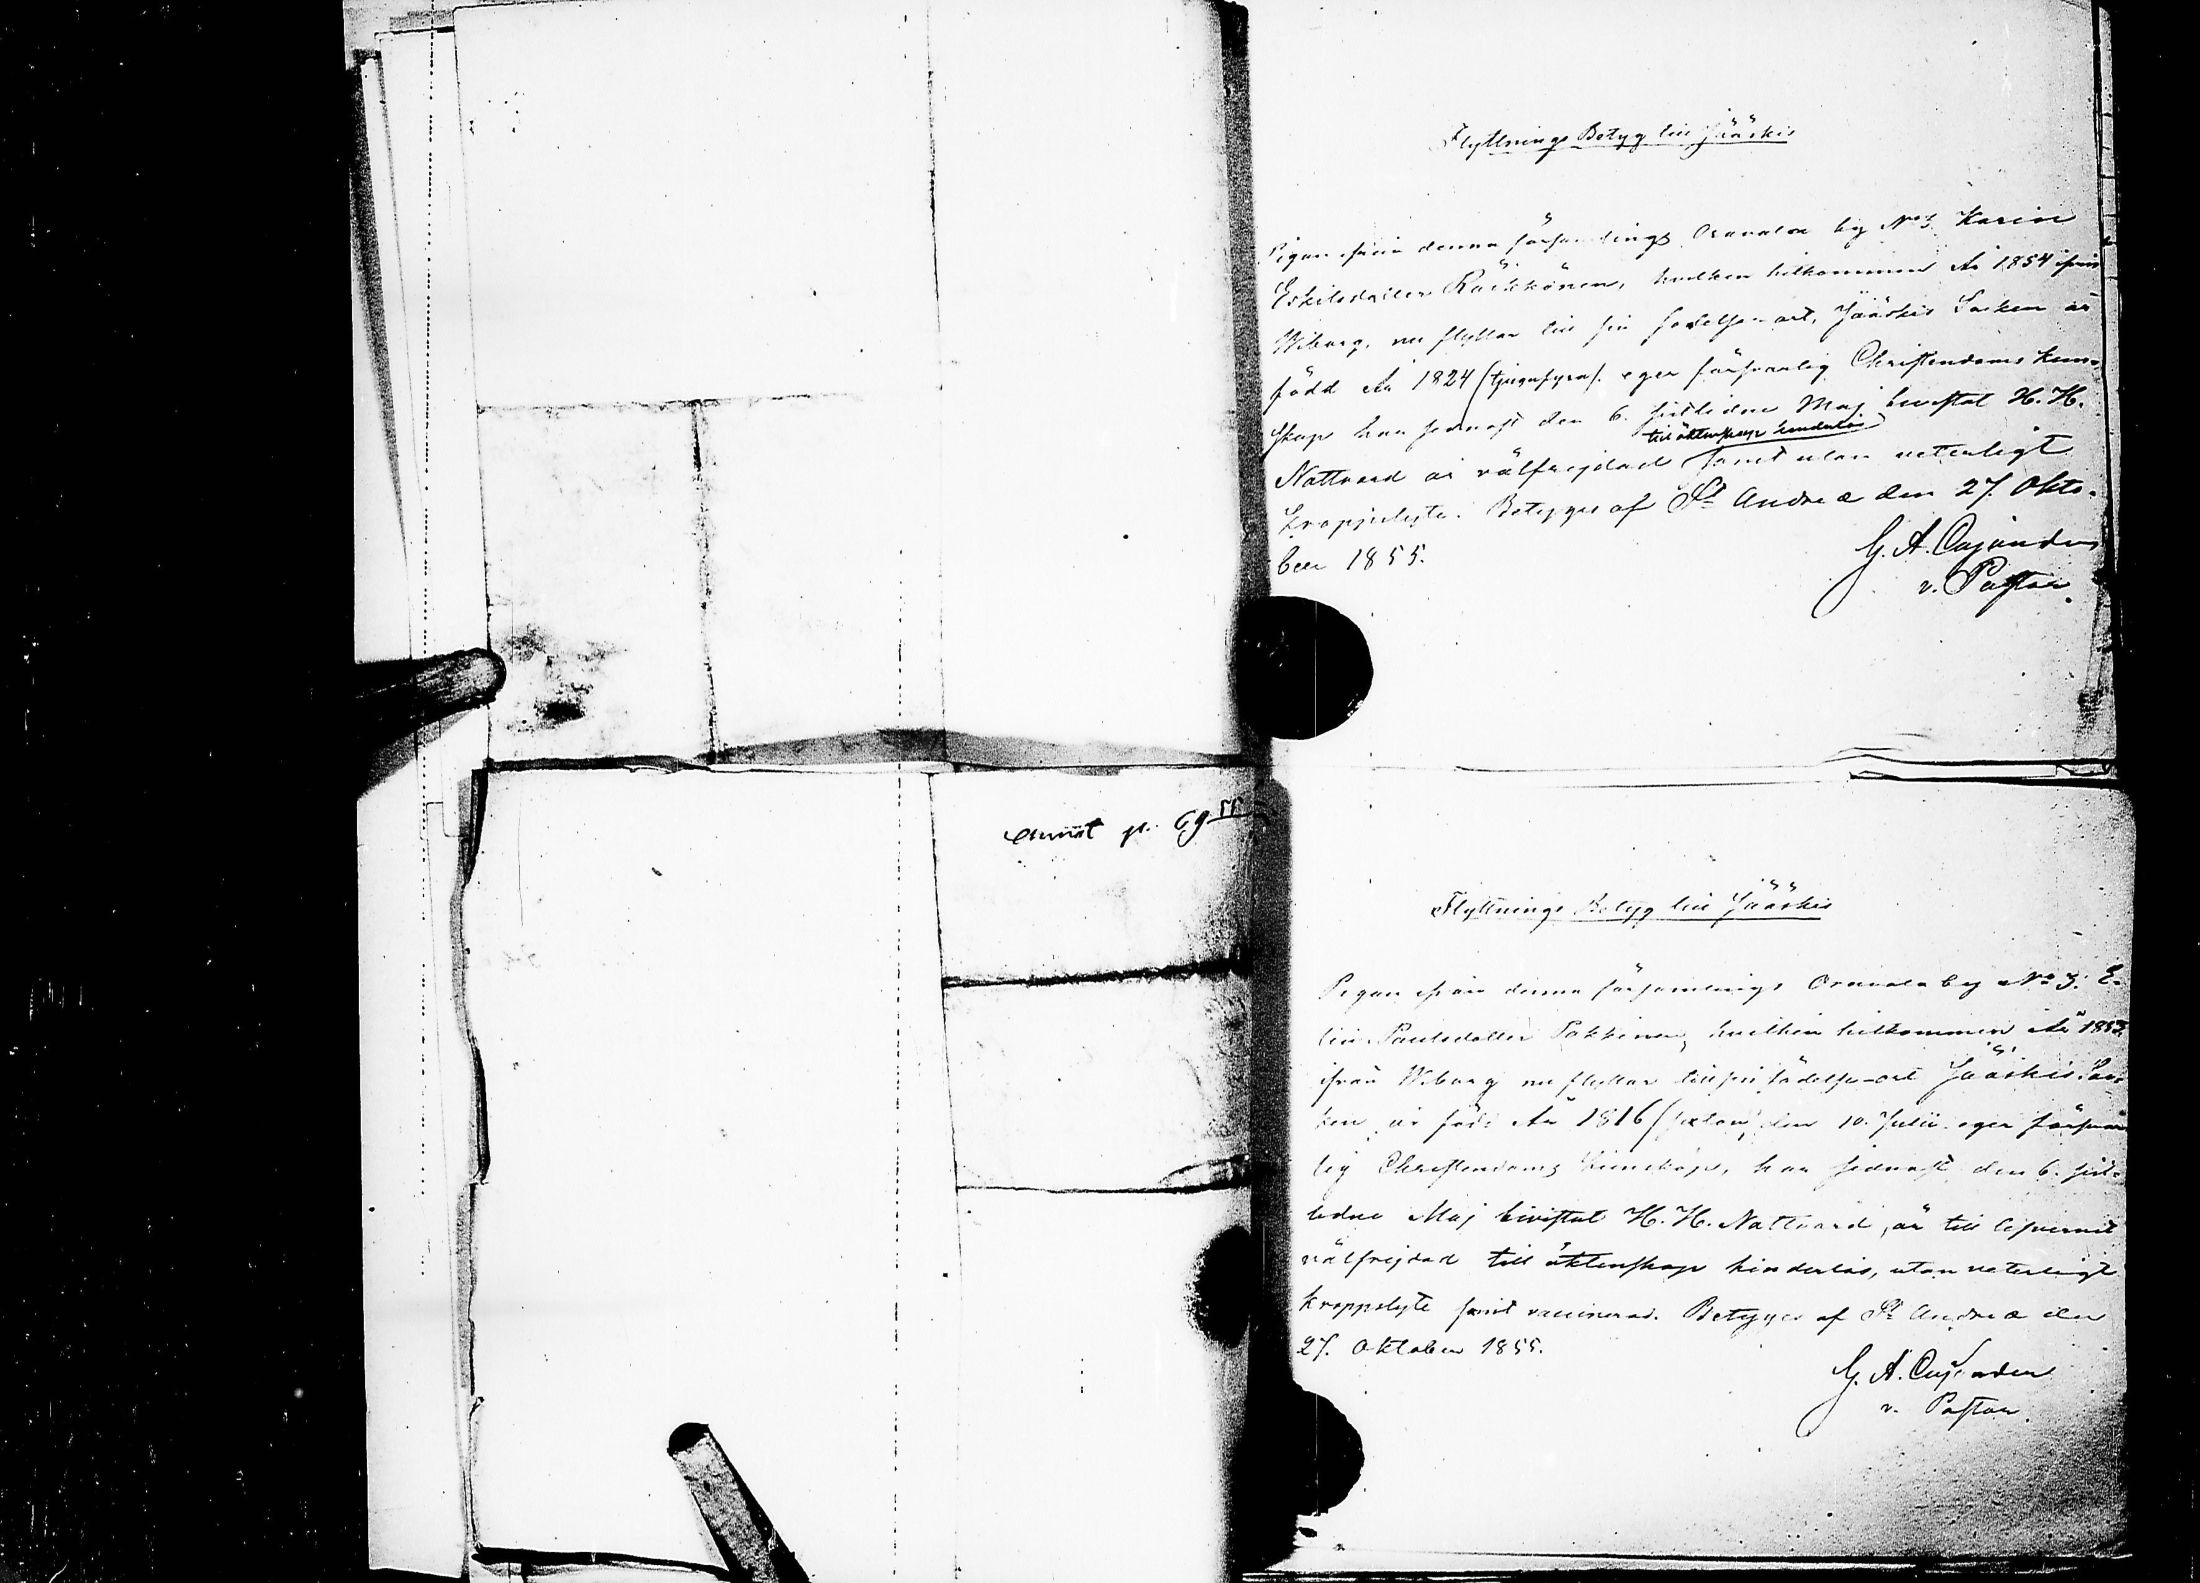 Flyttnings Betyg till Jääskis
Pigan ifrån denna församlings Oravala by No 3. Karin
Eskilsdotter Räikkönen, hvilken hitkommen År 1854 ifrån
Wiborg, nu flyttar till sin födelse-ort, Jääskis Socken är
född År 1824 (tjugufyra). eger försvarlig Christendoms kun-
skap har sednast den 6. sistlidne Maj bevistat H. H.
till äktenskap hinderlös
Nattvard är välfrejdad samt utan veterligt
kroppslyte. Betygas af St Andreæ den 27. Okto-
ber 1855.
G. A. Cajander
v. Pastor.
p. 69
Flyttnings Betyg till Jääskis
Pigan ifrån denna församlings Oravala by No 3. E-
lin Paulsdotter Pakkinen, hvilken hitkommen År 1853
ifrån Wiborg nu flyttar till sin födelse-ort Jääskis Soc-
ken är född År 1816 (sexton) den 10. Julii eger försvar-
lig Christendoms kunskap, har sednast den 6. sist-
lidne Maj bivistat H. H. Nattvard, är till lefvernet
välfrejdad till äktenskap hinderlös, utan veterligt
kroppslyte samt vaccinerad. Betygas af St Andreæ den
27. Oktober 1855.
G. A. Cajander
v. Pastor.